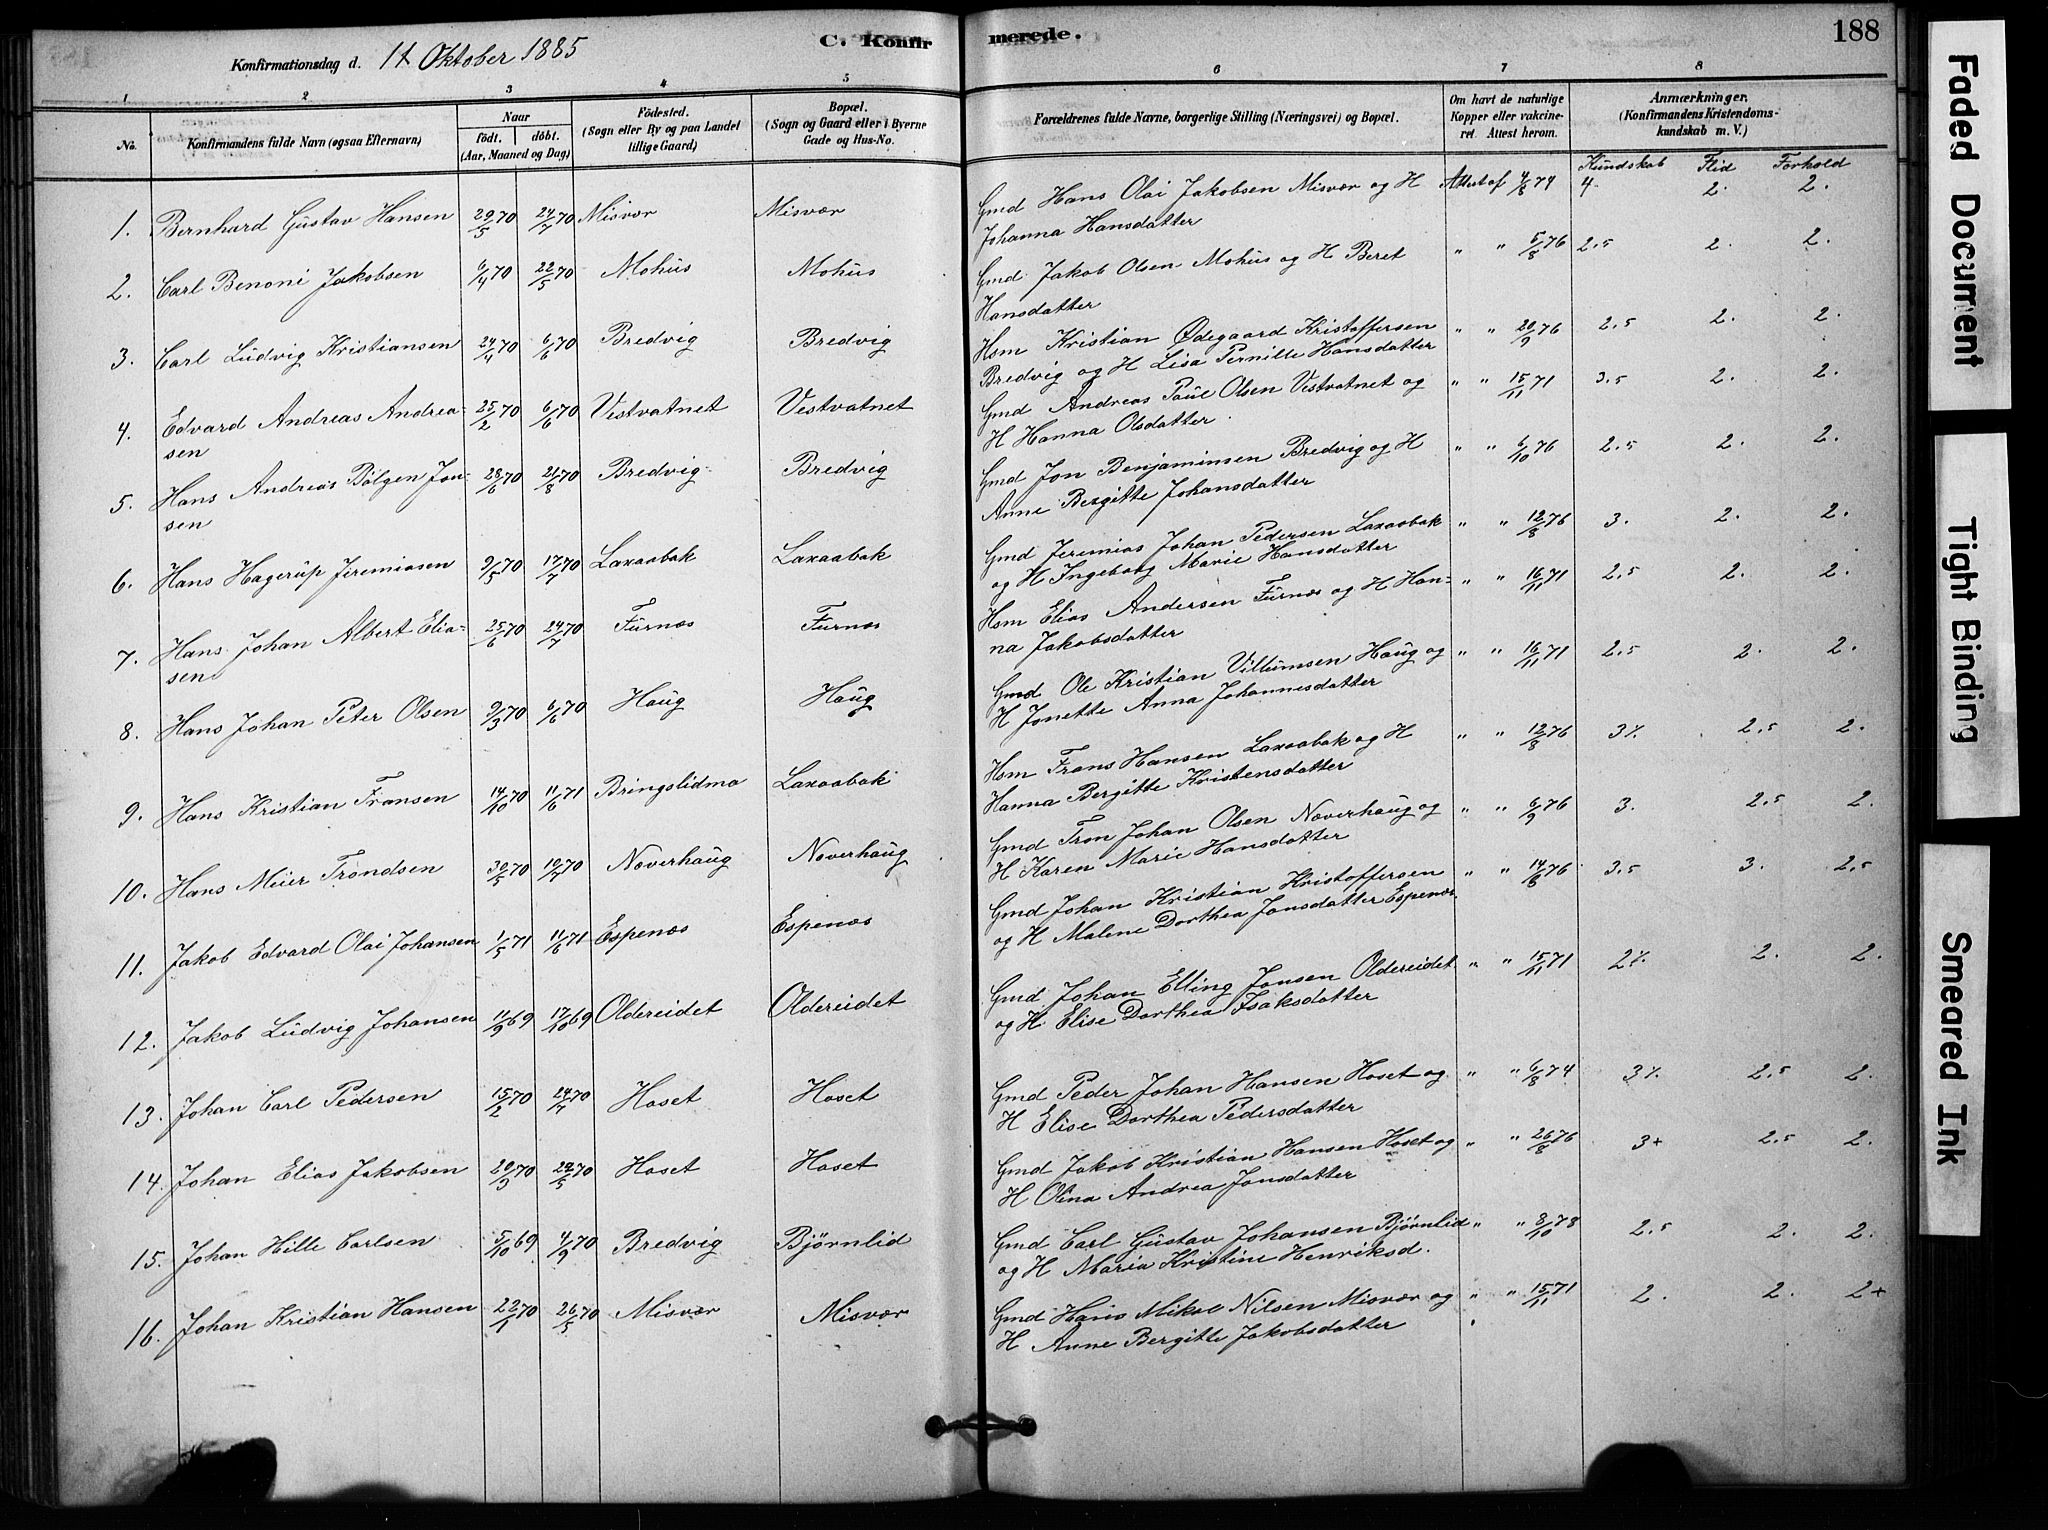 Konfirmationsdag d. 11 Oktober 1885
C. Konfirmerede.
188
1 2 3 4 5 6 7 8
No.
Konfirmandens fulde Navn (ogsaa Efternavn)
Naar
födt. döbt.
(Aar, Maaned og Dag)
Födested.
(Sogn eller By og paa Landet
tillige Gaard)
Bopæl.
(Sogn og Gaard eller i Byerne
Gade og Hus-No.
Forældrenes fulde Navne, borgerlige Stilling (Næringsvei) og Bopæl.
Om havt de naturlige
Kopper eller vakcine-
ret. Attest herom.
Anmærkninger.
(Konfirmandens Kristendoms-
kundskab m. V.)
Kundskab Flid Forhold
1. Bernhard Gustav Hansen 29/5 70 24/7 70 Misvær Misvær Gmd Hans Olai Jakobsen Misvær og H Attest af 4/8 74 4. 2. 2.
Johanna Hansdatter
2. Carl Benoni Jakobsen 6/4 70 22/5 70 Mohus Mohus Gmd Jakob Olsen Mohus og H Beret " " 5/8 76 2.5 2. 2.
Hansdatter
3. Carl Ludvig Kristiansen 24/4 70 6/6 70 Bredvig Bredvig Hsm Kristian Ødegaard Kristoffersen " " 20/9 76 2.5 2. 2.
Bredvig og H Lisa Pernille Hansdatter
4. Edvard Andreas Andrea- 25/2 70 6/6 70 Vestvatnet Vestvatnet Gmd Andreas Paul Olsen Vestvatnet og " " 15/11 71 3.5 2. 2.
sen H Hanna Olsdatter
5. Hans Andreas Bölgen Jon- 28/6 70 21/8 70 Bredvig Bredvig Gmd Jon Benjaminsen Bredvig og H " " 6/10 76 2.5 2. 2.
sen Anne Bergitte Johansdatter
6. Hans Hagerup Jeremiasen 9/5 70 17/7 70 Laxaabak Laxaabak Gmd Jeremias Johan Pedersen Laxaabak " " 12/8 76 3. 2. 2.
og H Ingeborg Marie Hansdatter
7. Hans Johan Albert Elia- 25/6 70 24/7 70 Furnæs Furnæs Hsm Elias Andersen Furnæs og H Han- " " 16/11 71 2.5 2. 2.
sen na Jakobsdatter
8. Hans Johan Peter Olsen 9/3 70 6/6 70 Haug Haug Gmd Ole Kristian Villumsen Haug og " " 16/11 71 2.5 2. 2.
H Jonette Anna Johannesdatter
9. Hans Kristian Fransen 14/10 70 11/6 71 Bringslidmo Laxaabak Hsm Frans Hansen Laxaabak og H " " 12/8 76 3% 2.5 2.
Hanna Bergitte Kristensdatter
10. Hans Meier Tröndsen 30/5 70 10/7 70 Noverhaug Noverhaug Gmd Tron Johan Olsen Noverhaug og " " 6/9 76 3. 2.5 2.
H Karen Marie Hansdatter
11. Jakob Edvard Olai Johansen 1/5 71 11/6 71 Espenæs Espenæs Gmd Johan Kristian Kristoffersen " " 14/8 76 3.5 3. 2.5
og H Malene Dorthea Jonsdatter Espenæs
12. Jakob Ludvig Johansen 11/9 69 17/10 69 Oldereidet Oldereidet Gmd Johan Elling Jonsen Oldereidet " " 15/11 71 2% 2. 2.
og H. Elise Dorthea Isaksdatter
13. Johan Carl Pedersen 15/2 70 24/7 70 Hoset Hoset Gmd Peder Johan Hansen Hoset og " " 6/8 74 3% 2.5 2.
H Elise Dorthea Pedersdatter
14. Johan Elias Jakobsen 20/3 70 22/5 70 Hoset Hoset Gmd Jakob Kristian Hansen Hoset og " " 26/8 76 3+ 2.5 2.
H Olina Andrea Jonsdatter
15. Johan Hille Carlsen 5/10 69 4/9 70 Bredvig Bjørnlid Gmd Carl Gustav Johansen Bjørnlid " " 8/10 78 2.5 2. 2.
og H Maria Kristine Henriksd.
16. Johan Kristian Hansen 22/1 70 26/5 70 Misvær Misvær Gmd Hans Mikal Nilsen Misvær og " " 15/11 71 2. 2. 2+
H Anne Bergitte Jakobsdatter
Faded Document
Tight Binding
Smeared Ink